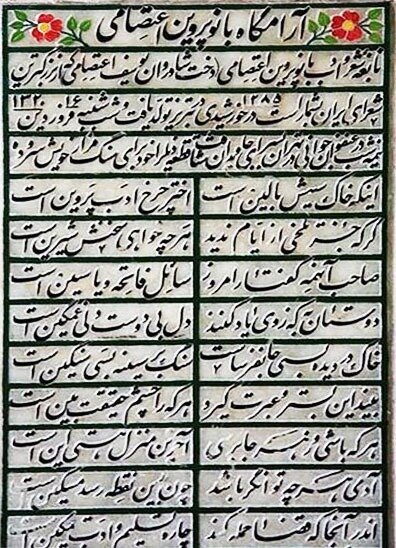 آرامگاه بانو پروین اعتصامی
نابغه شعر و ادب بانو پروین اعتصامی (دخت شادروان یوسف اعتصامی) که از بزرگترین
شعرای ایران بشمار است در ۱۲۸۵ خورشیدی در تبریز تولد یافت و شب شنبه ۱۶ فروردین ۱۳۲۰
نیمه شب در عنفوان جوانی در تهران بسرای جاودان شتافت قطعه ذیل را خود برای سنگ مزار خویش سروده
اینکه خاک سیهش بالین است اختر چرخ ادب پروین است
گرچه جز تلخی از ایام ندید هر چه خواهی سخنش شیرین است
صاحب آنهمه گفتار امروز سائل فاتحه و یاسین است
دوستان به که ز وی یاد کنند دل بی دوست دلی غمگین است
خاک در دیده بسی جانفرساست سنگ بر سینه بسی سنگین است
بیند این بستر و عبرت گیرد هر که را چشم حقیقت بین است
هر که باشی و ز هر جا برسی آخرین منزل هستی این است
آدمی هر چه توانگر باشد چون بدین نقطه رسد مسکین است
اندر آنجا که قضا حمله کند چاره تسلیم و ادب تمکین است